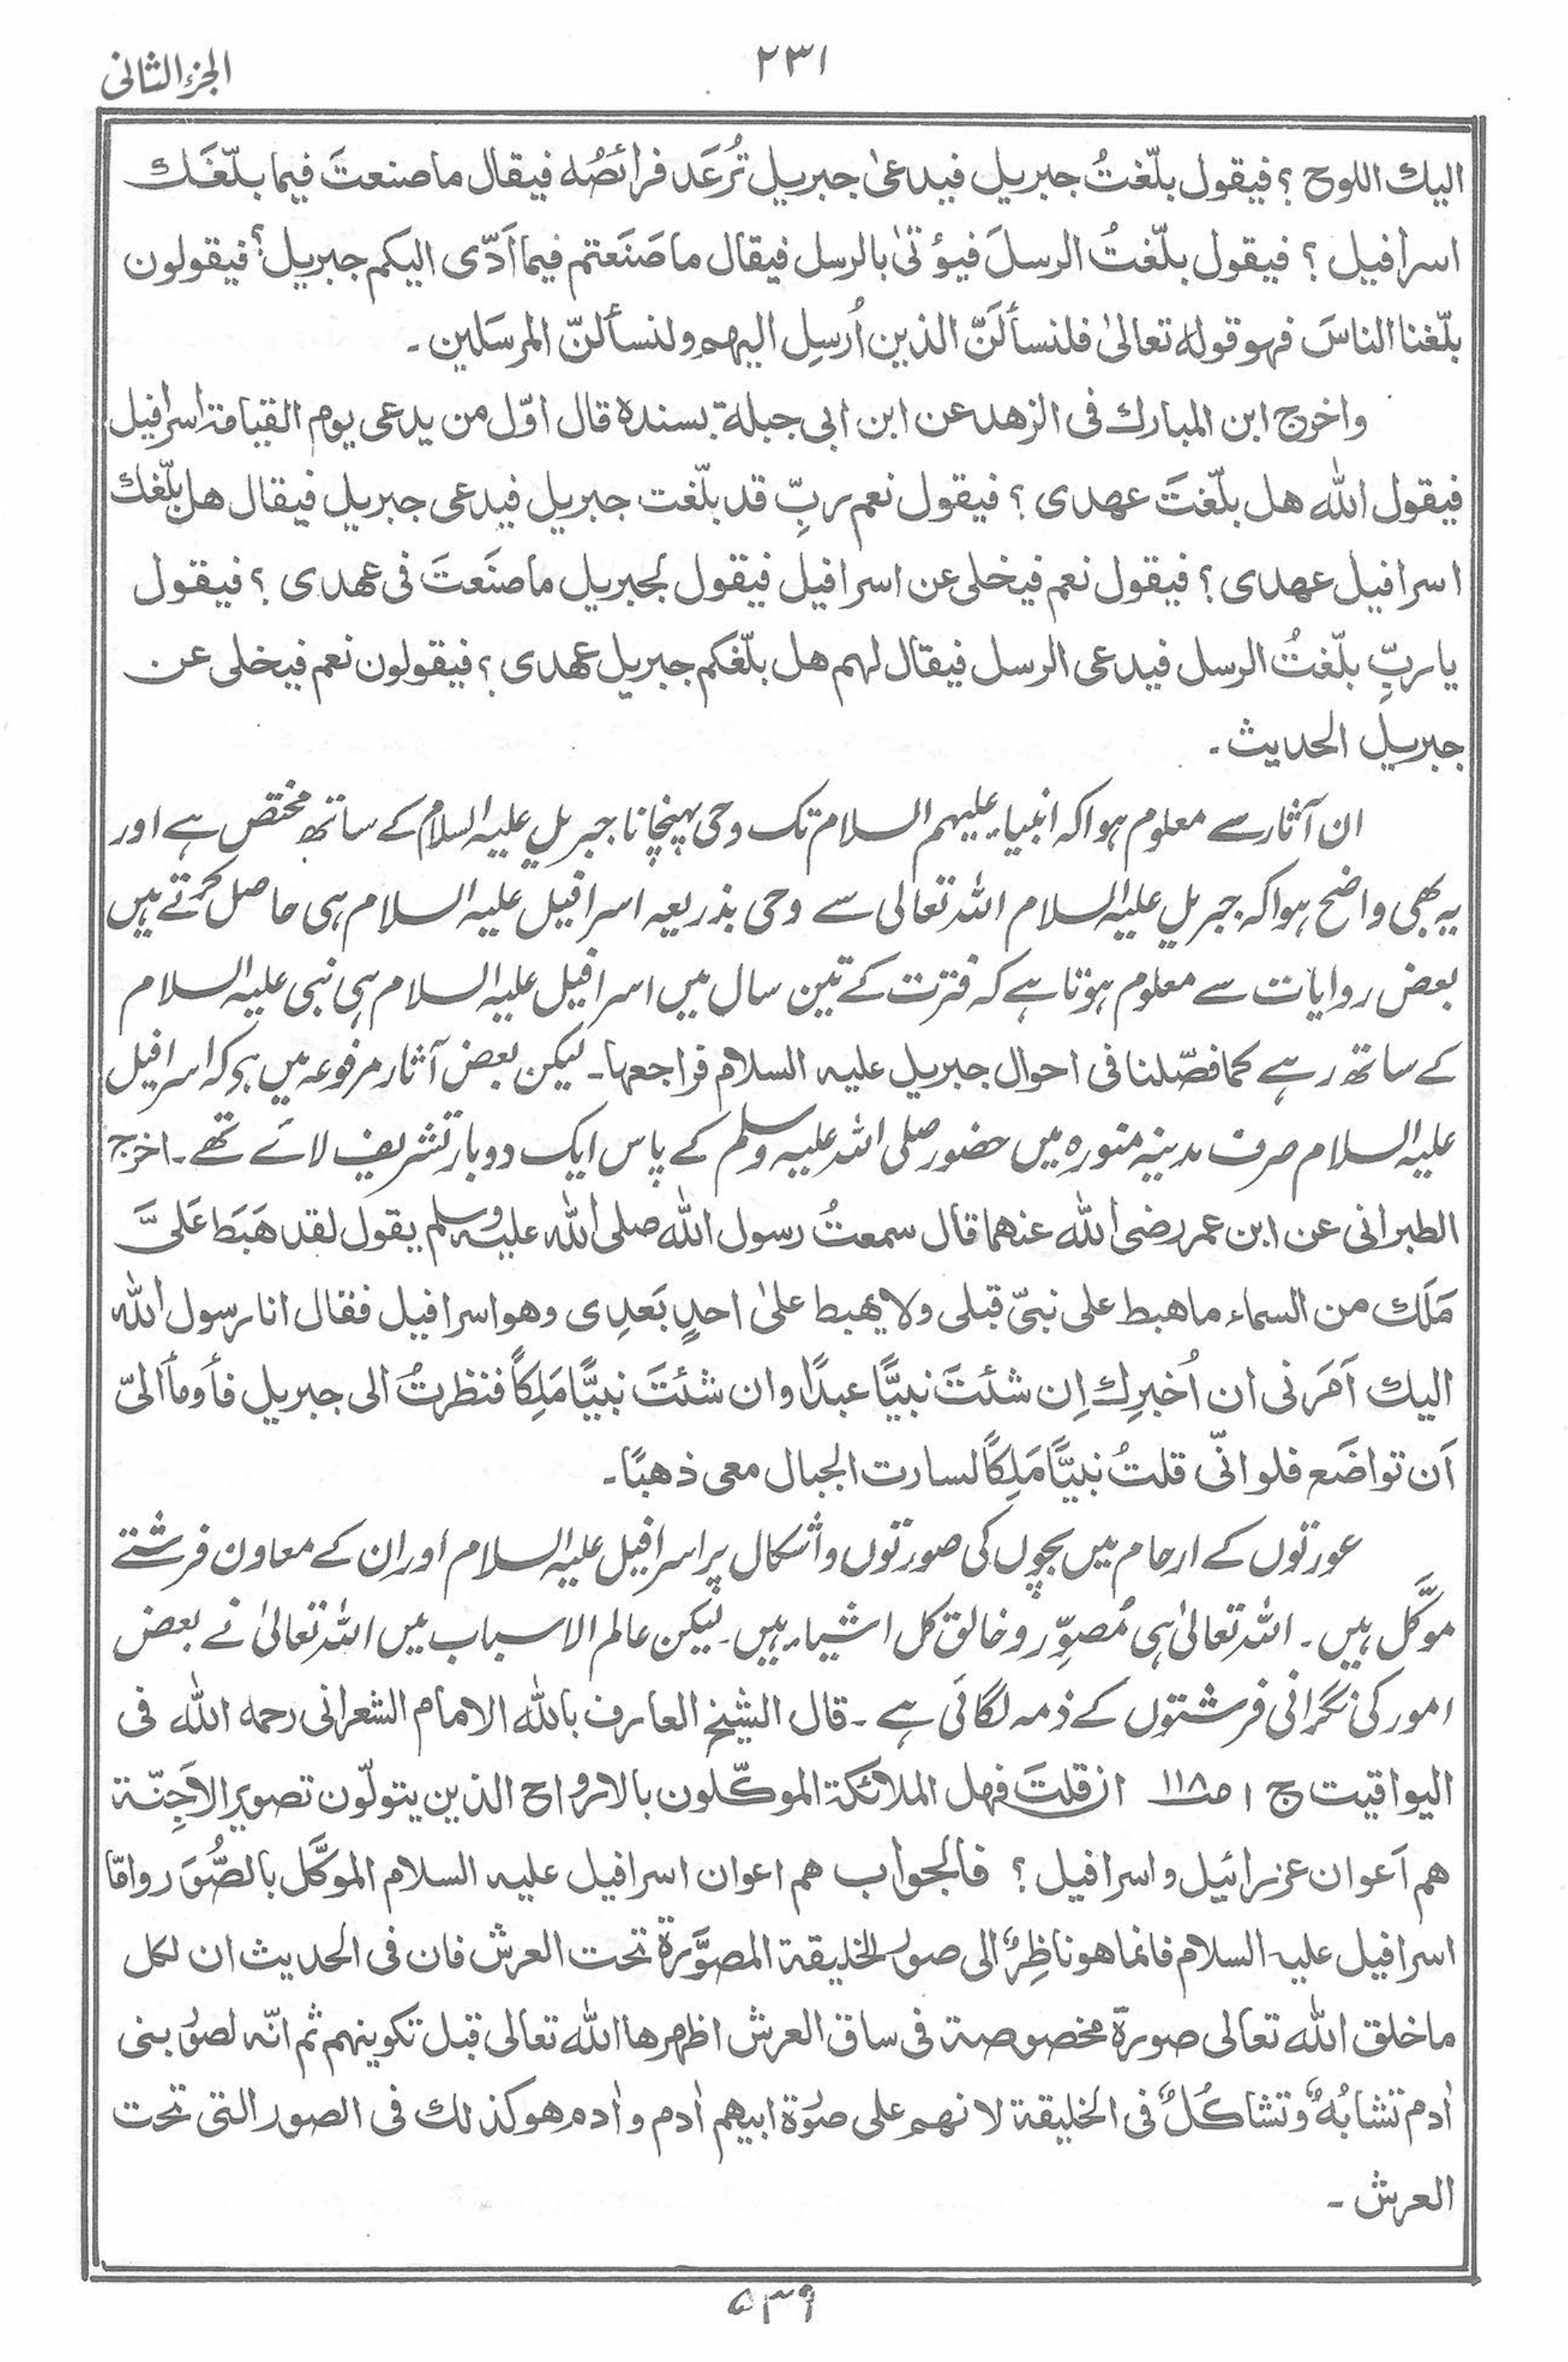 الجزء الثانی
۲۳۱
الیك اللوح ؟ فیقول بلّغتُ جبریل فیدعیٰ جبریل تُرعَد فرائصُه فیقال ما صنعتَ فیما بلّغَك
اسرافیل ؟ فیقول بلّغتُ الرسلَ فیؤتیٰ بالرسل فیقال ما صَنَعتم فیما اَدّی الیکم جبریل؟ فیقولون
بلّغنا الناسَ فهو قوله تعالیٰ فلنسألَنّ الذین اُرسِل الیهم ولنسألنّ المرسَلین ۔
واخرج ابن المبارك فی الزهد عن ابن ابی جبلة بسنده قال اوّل من یدعی یوم القیامة اسرافیل
فیقول الله هل بلّغتَ عهدی ؟ فیقول نعم ربِّ قد بلّغت جبریل فیدعی جبریل فیقال هل بلّغك
اسرافیل عهدی ؟ فیقول نعم فیخلی عن اسرافیل فیقول لجبریل ما صنَعتَ فی عهدی ؟ فیقول
یا ربِّ بلّغتُ الرسل فیدعی الرسل فیقال لهم هل بلّغکم جبریل عهدی ؟ فیقولون نعم فیخلی عن
جبریل الحدیث ۔
ان آثار سے معلوم ہوا کہ انبیاء علیہم السلام تک وحی پہنچانا جبریل علیہ السلام کے ساتھ مختص ہے اور
یہ بھی واضح ہوا کہ جبریل علیہ السلام اللہ تعالی سے وحی بذریعہ اسرافیل علیہ السلام ہی حاصل کرتے ہیں
بعض روایات سے معلوم ہوتا ہے کہ فترت کے تین سال میں اسرافیل علیہ السلام ہی نبی علیہ السلام
کے ساتھ رہے کما فصّلنا فی احوال جبریل علیہ السلام فراجعہا۔ لیکن بعض آثار مرفوعہ میں ہے کہ اسرافیل
علیہ السلام صرف مدینہ منورہ میں حضور صلی اللہ علیہ وسلم کے پاس ایک دو بار تشریف لائے تھے ۔ اخرج
الطبرانی عن ابن عمر رضی الله عنهما قال سمعتُ رسول الله صلی الله علیه وسلم یقول لقد هَبَط عَلَیَّ
مَلَك من السماء ما هبط علی نبیّ قبلی ولا یهبط علیٰ احدٍ بَعدِی وهو اسرافیل فقال انا رسول الله
الیك اَمَرنی ان اُخبرِك اِن شئتَ نبیًّا عبدًا وان شئتَ نبیًّا مَلِکًا فنظرتُ الی جبریل فأومأ الیّ
اَن تواضَع فلو انّی قلتُ نبیًّا مَلِکًا لسارت الجبال معی ذهبًا ۔
عورتوں کے ارحام میں بچوں کی صورتوں و اشکال پر اسرافیل علیہ السلام اور ان کے معاون فرشتے
موَکَّل ہیں ۔ اللہ تعالیٰ ہی مُصوِّر و خالق کل اشیاء ہیں ۔ لیکن عالم الاسباب میں اللہ تعالیٰ نے بعض
امور کی نگرانی فرشتوں کے ذمہ لگائی ہے ۔ قال الشیخ العارف بالله الامام الشعرانی رحمه الله فی
الیواقیت ج ۱ ص۱۱۸ ان قلتَ فهل الملائکة الموکّلون بالارواح الذین یتولّون تصویر الاَجِنّة
هم اَعوان عزرائیل واسرافیل ؟ فالجواب هم اعوان اسرافیل علیه السلام الموکَّل بالصُّوَر وامّا
اسرافیل علیه السلام فانما هو ناظِرٌ الی صور الخلیقة المصوَّرة تحت العرش فان فی الحدیث ان لکل
ما خلق الله تعالی صورة مخصوصة فی ساق العرش اظهرها الله تعالی قبل تکوینهم ثم انّه لصور بنی
اٰدم تشابُهٌ وتشاکُلٌ فی الخلیقة لانهم علی صورة ابیهم اٰدم واٰدم هو کذلك فی الصور التی تحت
العرش ۔
۵۳۹